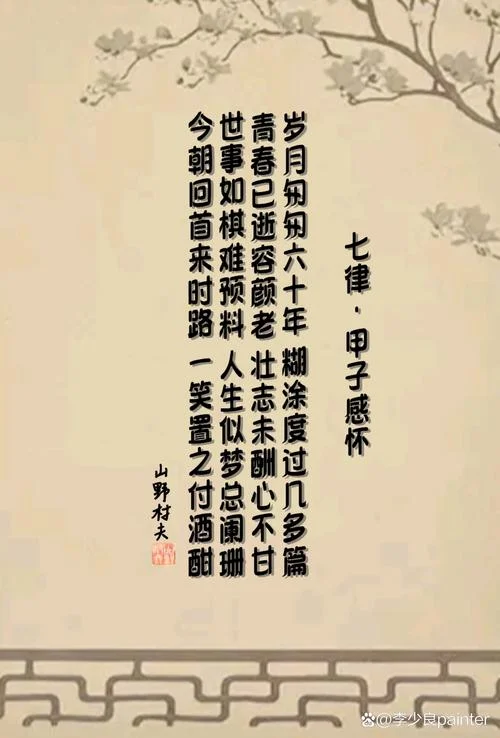 七律·甲子感怀
岁月匆匆六十年 糊涂度过几多篇
青春已逝容颜老 壮志未酬心不甘
世事如棋难预料 人生似梦总阑珊
今朝回首来时路 一笑置之付酒酣
山野村夫
@李少良painter